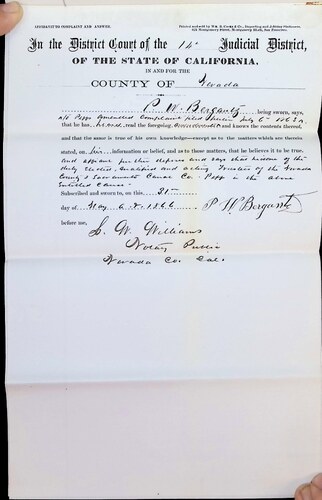 AFFIDAVIT TO COMPLAINT AND ANSWER.
In the District Court of the 14th Judicial District,
OF THE STATE OF CALIFORNIA,
IN AND FOR THE
COUNTY OF Nevada
P. W. Bergantz being sworn, says,
Amended Complaint filed herein July 6th 1863
that he has heard read the foregoing and knows the contents thereof,
and that the same is true of his own knowledge—except as to the matters which are therein
stated, on his information or belief, and as to those matters, that he believes it to be true.
And affiant further deposes and says that he is one of the
duly Elected, Qualified and acting Trustees of the Nevada
County & Sacramento Canal Co. in the above
Entitled Cause
Subscribed and sworn to, on this 21st
day of 1866 P. W. Bergantz
before me,
L. W. Williams
Notary Public
Nevada Co. Cal.